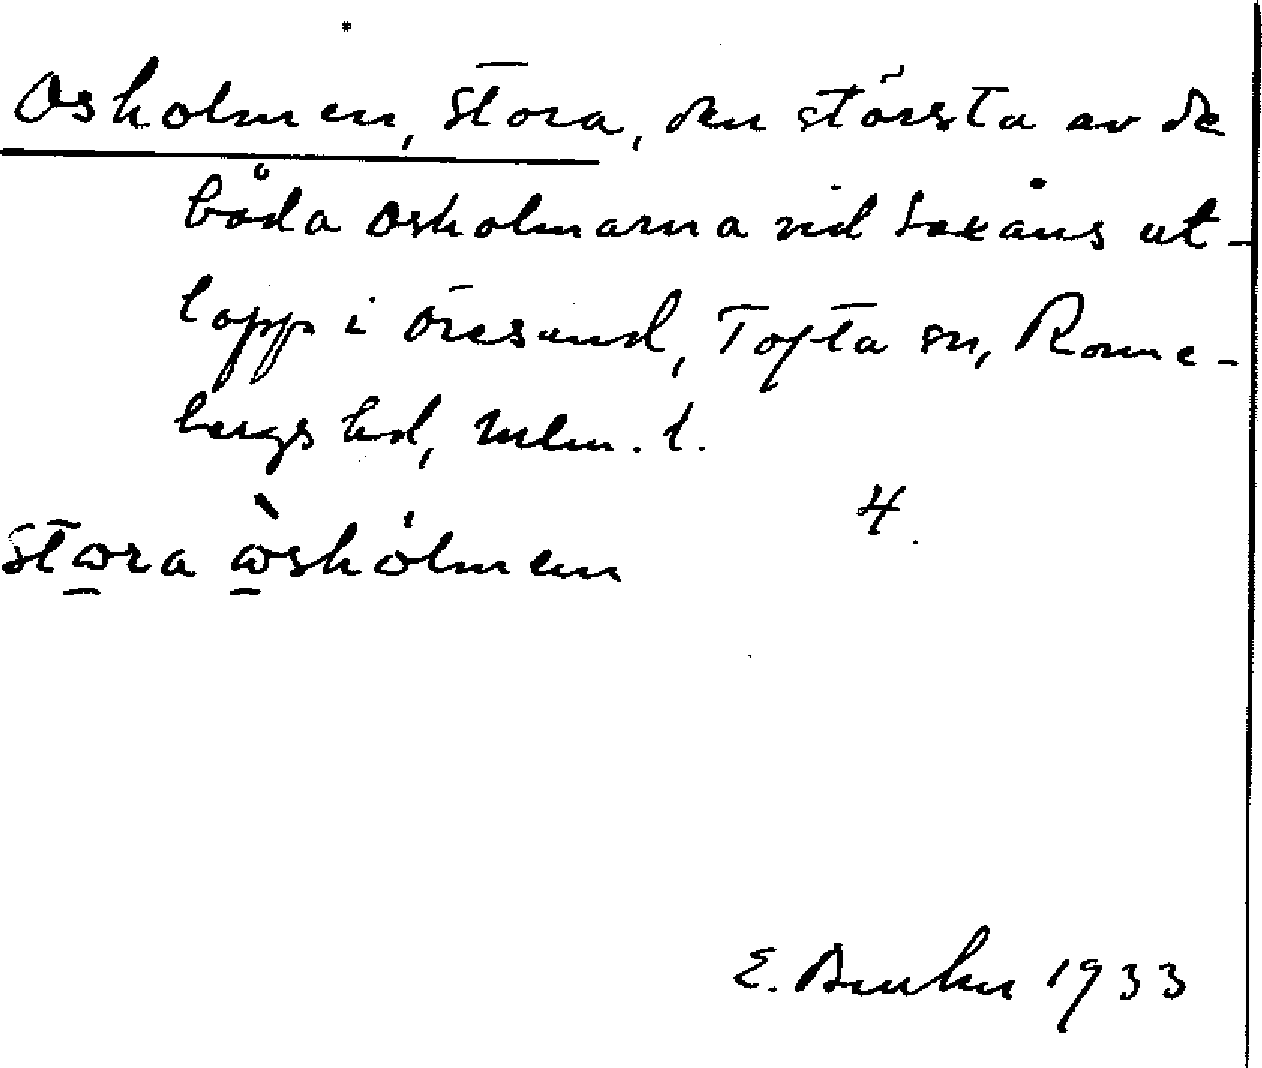 Osholmen, Stora, den största av de
båda Osholmarna vid Saxåns ut-
lopp i Öresund, Tofta sn, Rönne-
bergs hd, Mlm. l.
4.
stora òshólmen
E. 1933